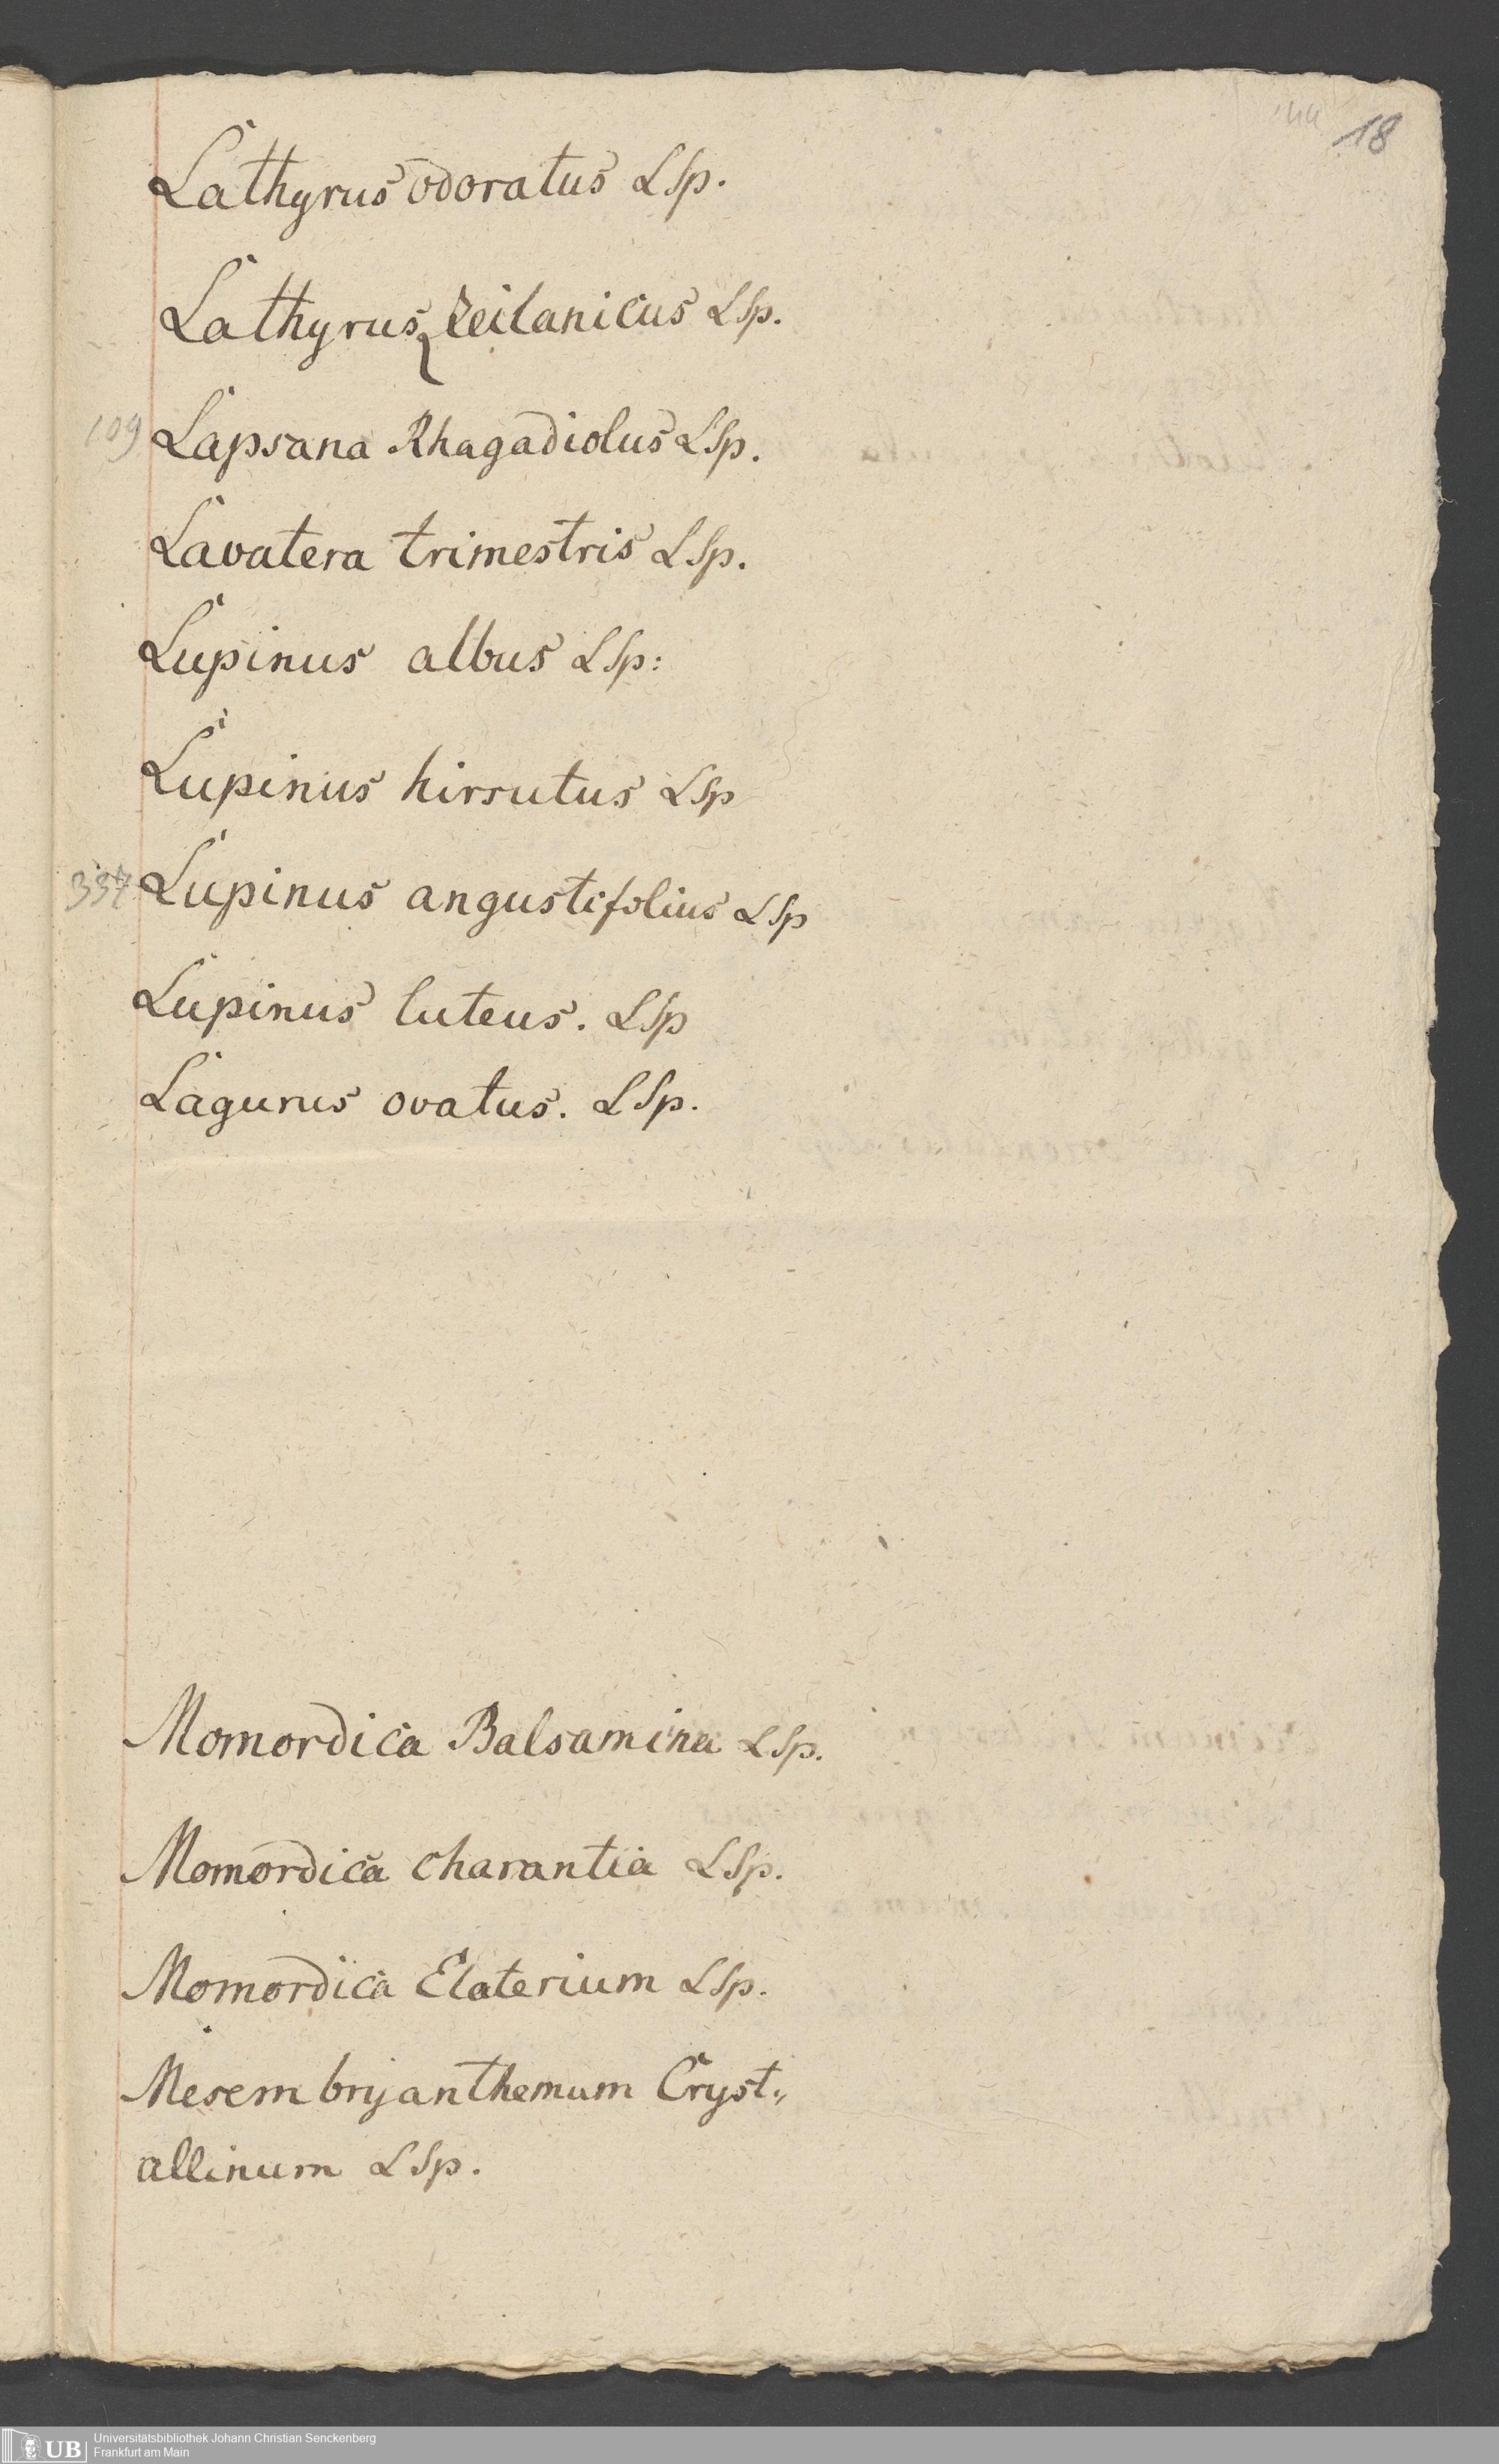 18
Lathyrus odoratus LSp.
Lathyrus zeilanicus LSp.
109 Lapsana Rhagadiolus LSp.
Lavatera trimestris LSp.
Lupinus albus LSp:
Lupinus hirsutus LSp
337 Lupinus angustifolius LSp
Lupinus luteus. LSp
Lagurus ovatus. LSp.
Momordica Balsamina LSp.
Momordica charantia LSp.
Momordica Elaterium LSp.
Mesembryanthemum Cryst„
allinum LSp.
UB Universitätsbibliothek Johann Christian Senckenberg
Frankfurt am Main